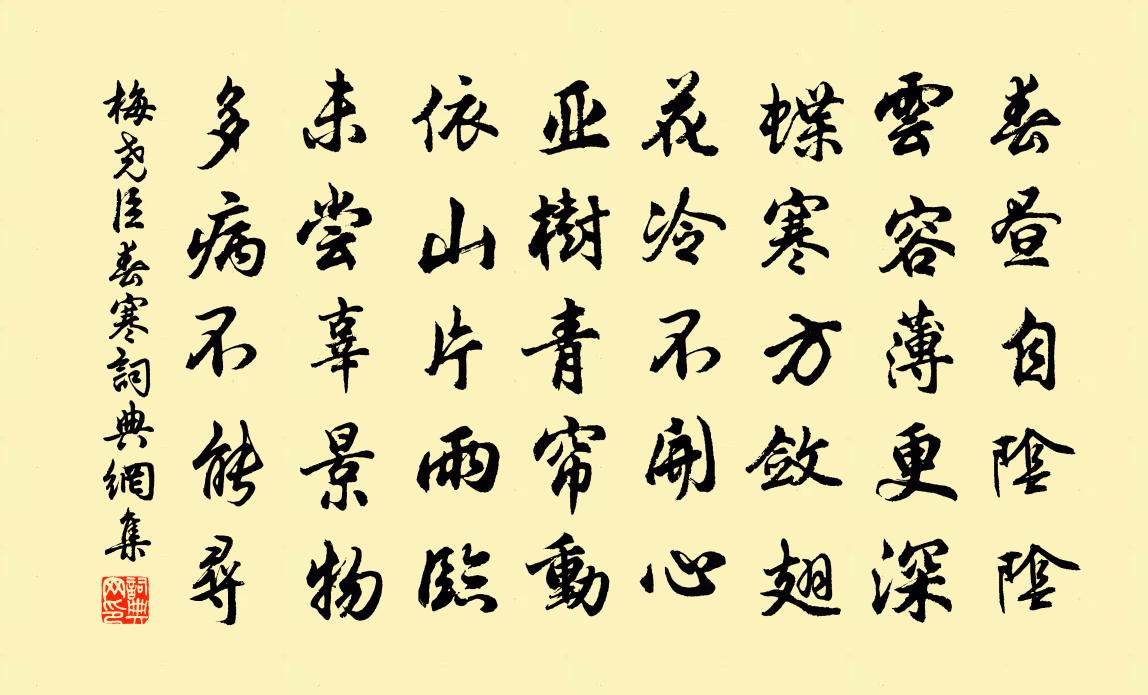 春昼自陰陰
雲容薄更深
蝶寒方斂翅
花冷不開心
亚樹青帘動
依山片雨臨
未尝辜景物
多病不能尋
梅尧臣春寒詞典網集
詞典网印